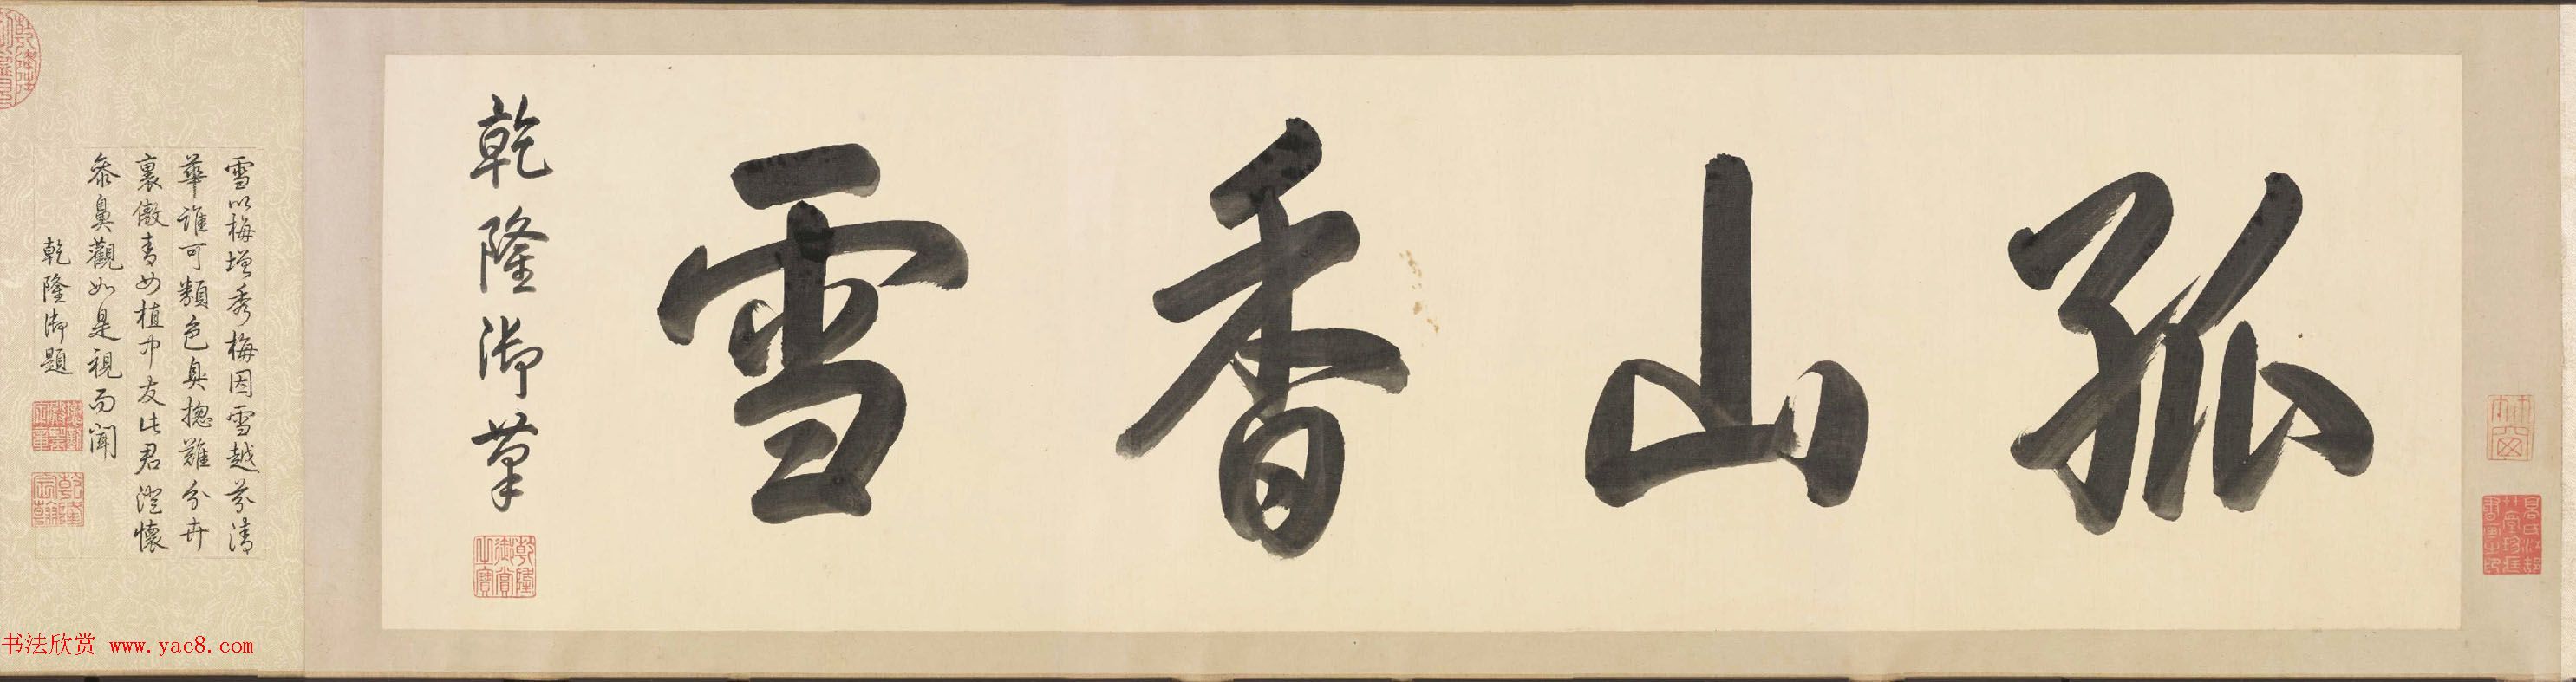 孤山香雪
乾隆御筆
乾隆御賞之寶
雪以梅增秀梅因雪越芬清
華誰可類色臭摠難分卉
裏傲青女植中友此君澄懷
參鼻觀如是視而聞
乾隆御題
乾隆宸翰
书法欣赏 www.yac8.com